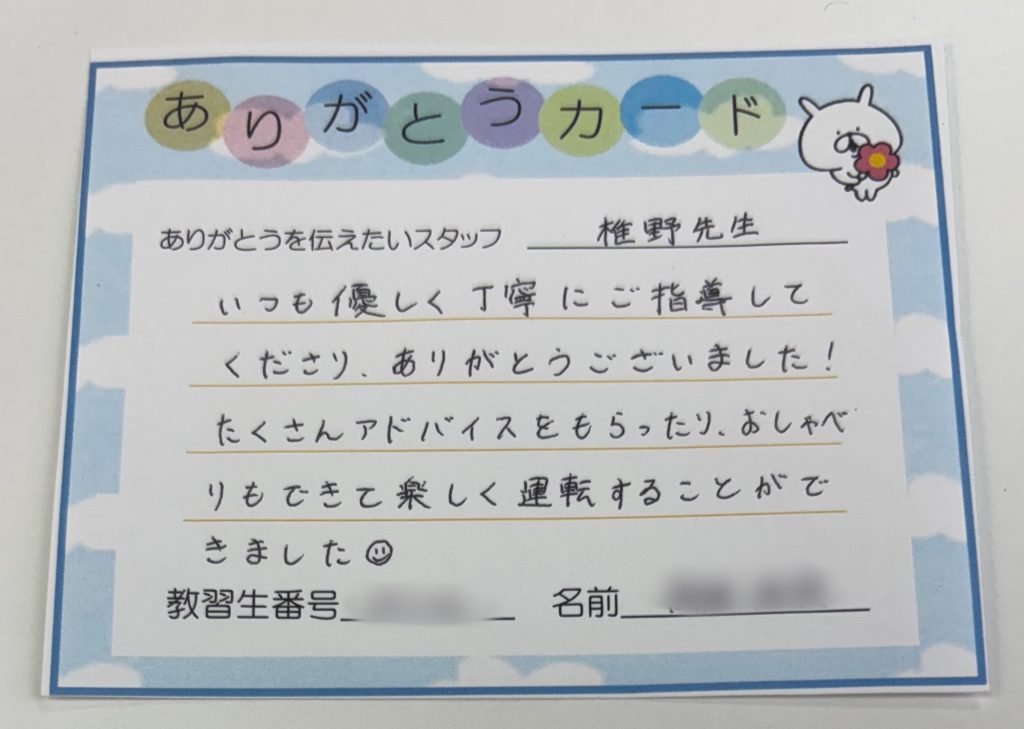 ありがとうカード
ありがとうを伝えたいスタッフ 椎野先生
いつも優しく丁寧にご指導して
くださり、ありがとうございました!
たくさんアドバイスをもらったり、おしゃべ
りもできて楽しく運転することがで
きました
教習生番号 名前